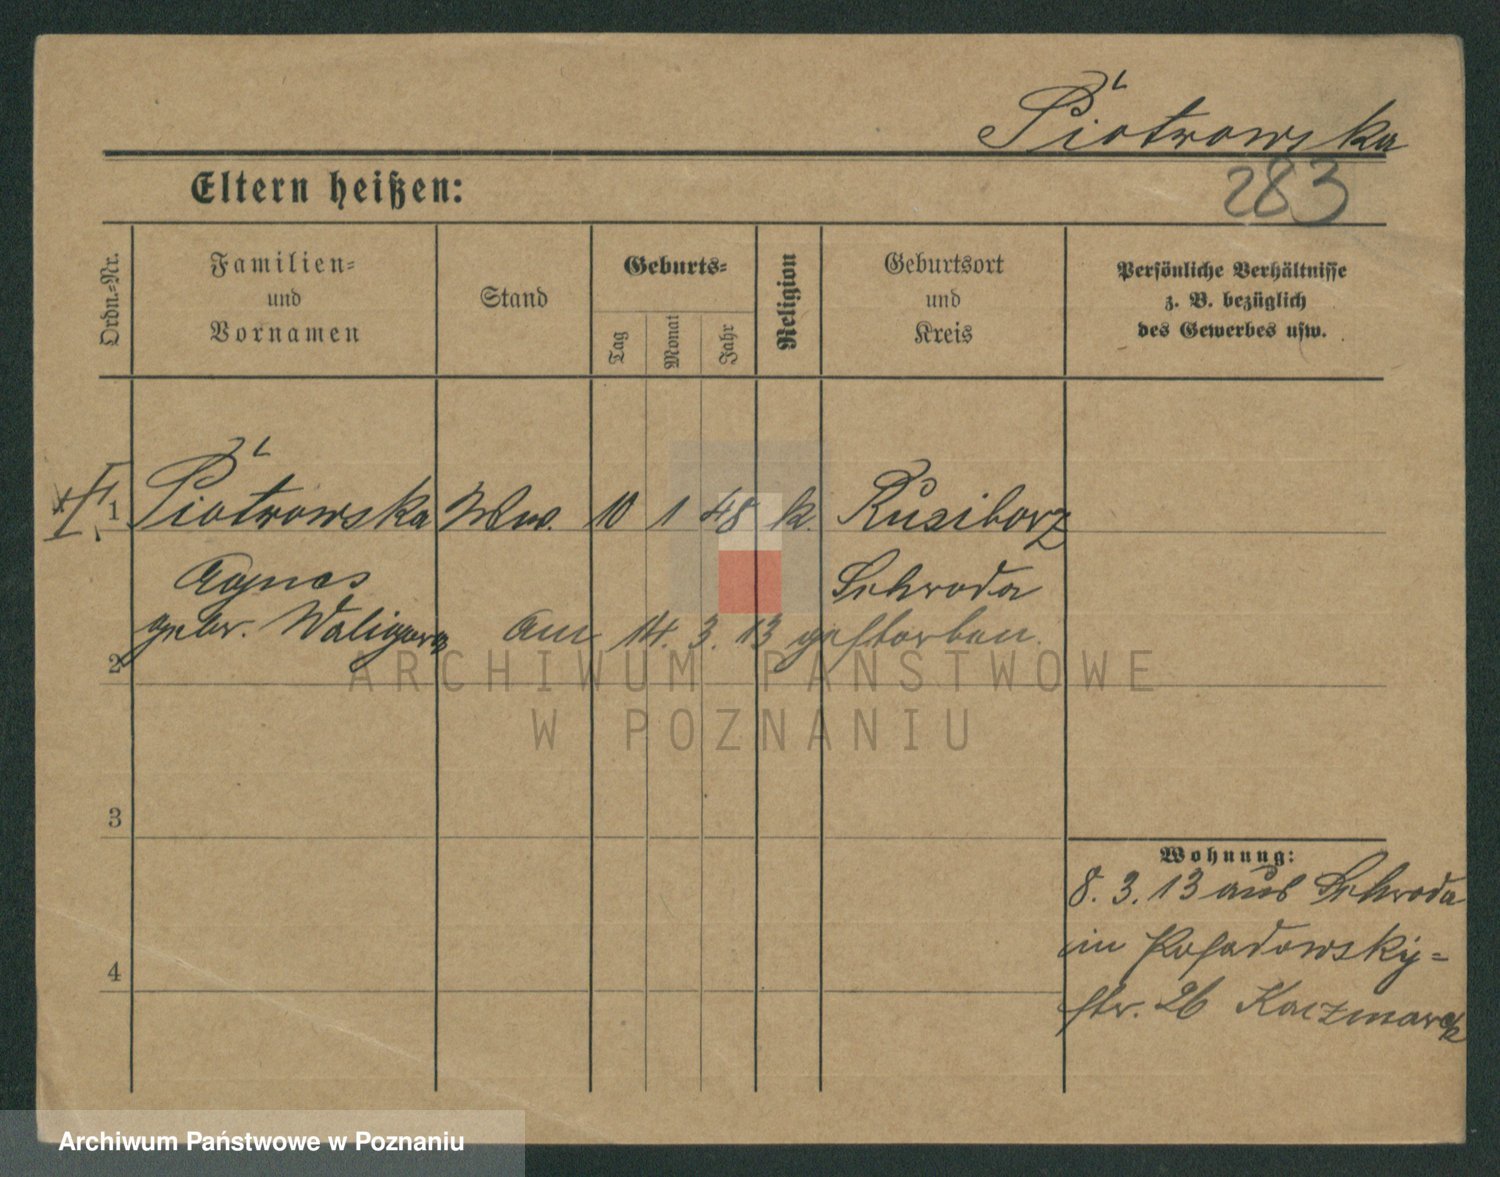 Piotrowska
283
Eltern heißen:
Ordn.-Nr.
Familien-
und
Vornamen
Stand
Geburts-
Tag
Monat
Jahr
Religion
Geburtsort
und
Kreis
Persönliche Verhältnisse
z. B. bezüglich
des Gewerbes usw.
1 Piotrowska Ww. 10 1 48 k. Rusiborz
Agnes Schroda
gebr. Waligora am 14. 3. 13 gestorben.
2
ARCHIWUM PAŃSTWOWE
W POZNANIU
3
Wohnung:
8. 3. 13 aus Schroda
in Posadowsky-
str. 26 Kaczmarek
4
Archiwum Państwowe w Poznaniu